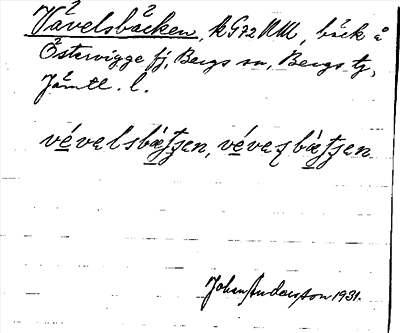 Vävelsbäcken, kG72NM, bäck å
Östervigge fj, Bergs sn, Bergs tg,
Jämtl. l.
vévelsbætʃen, vévesbætʃen
Johan Andersson 1931.